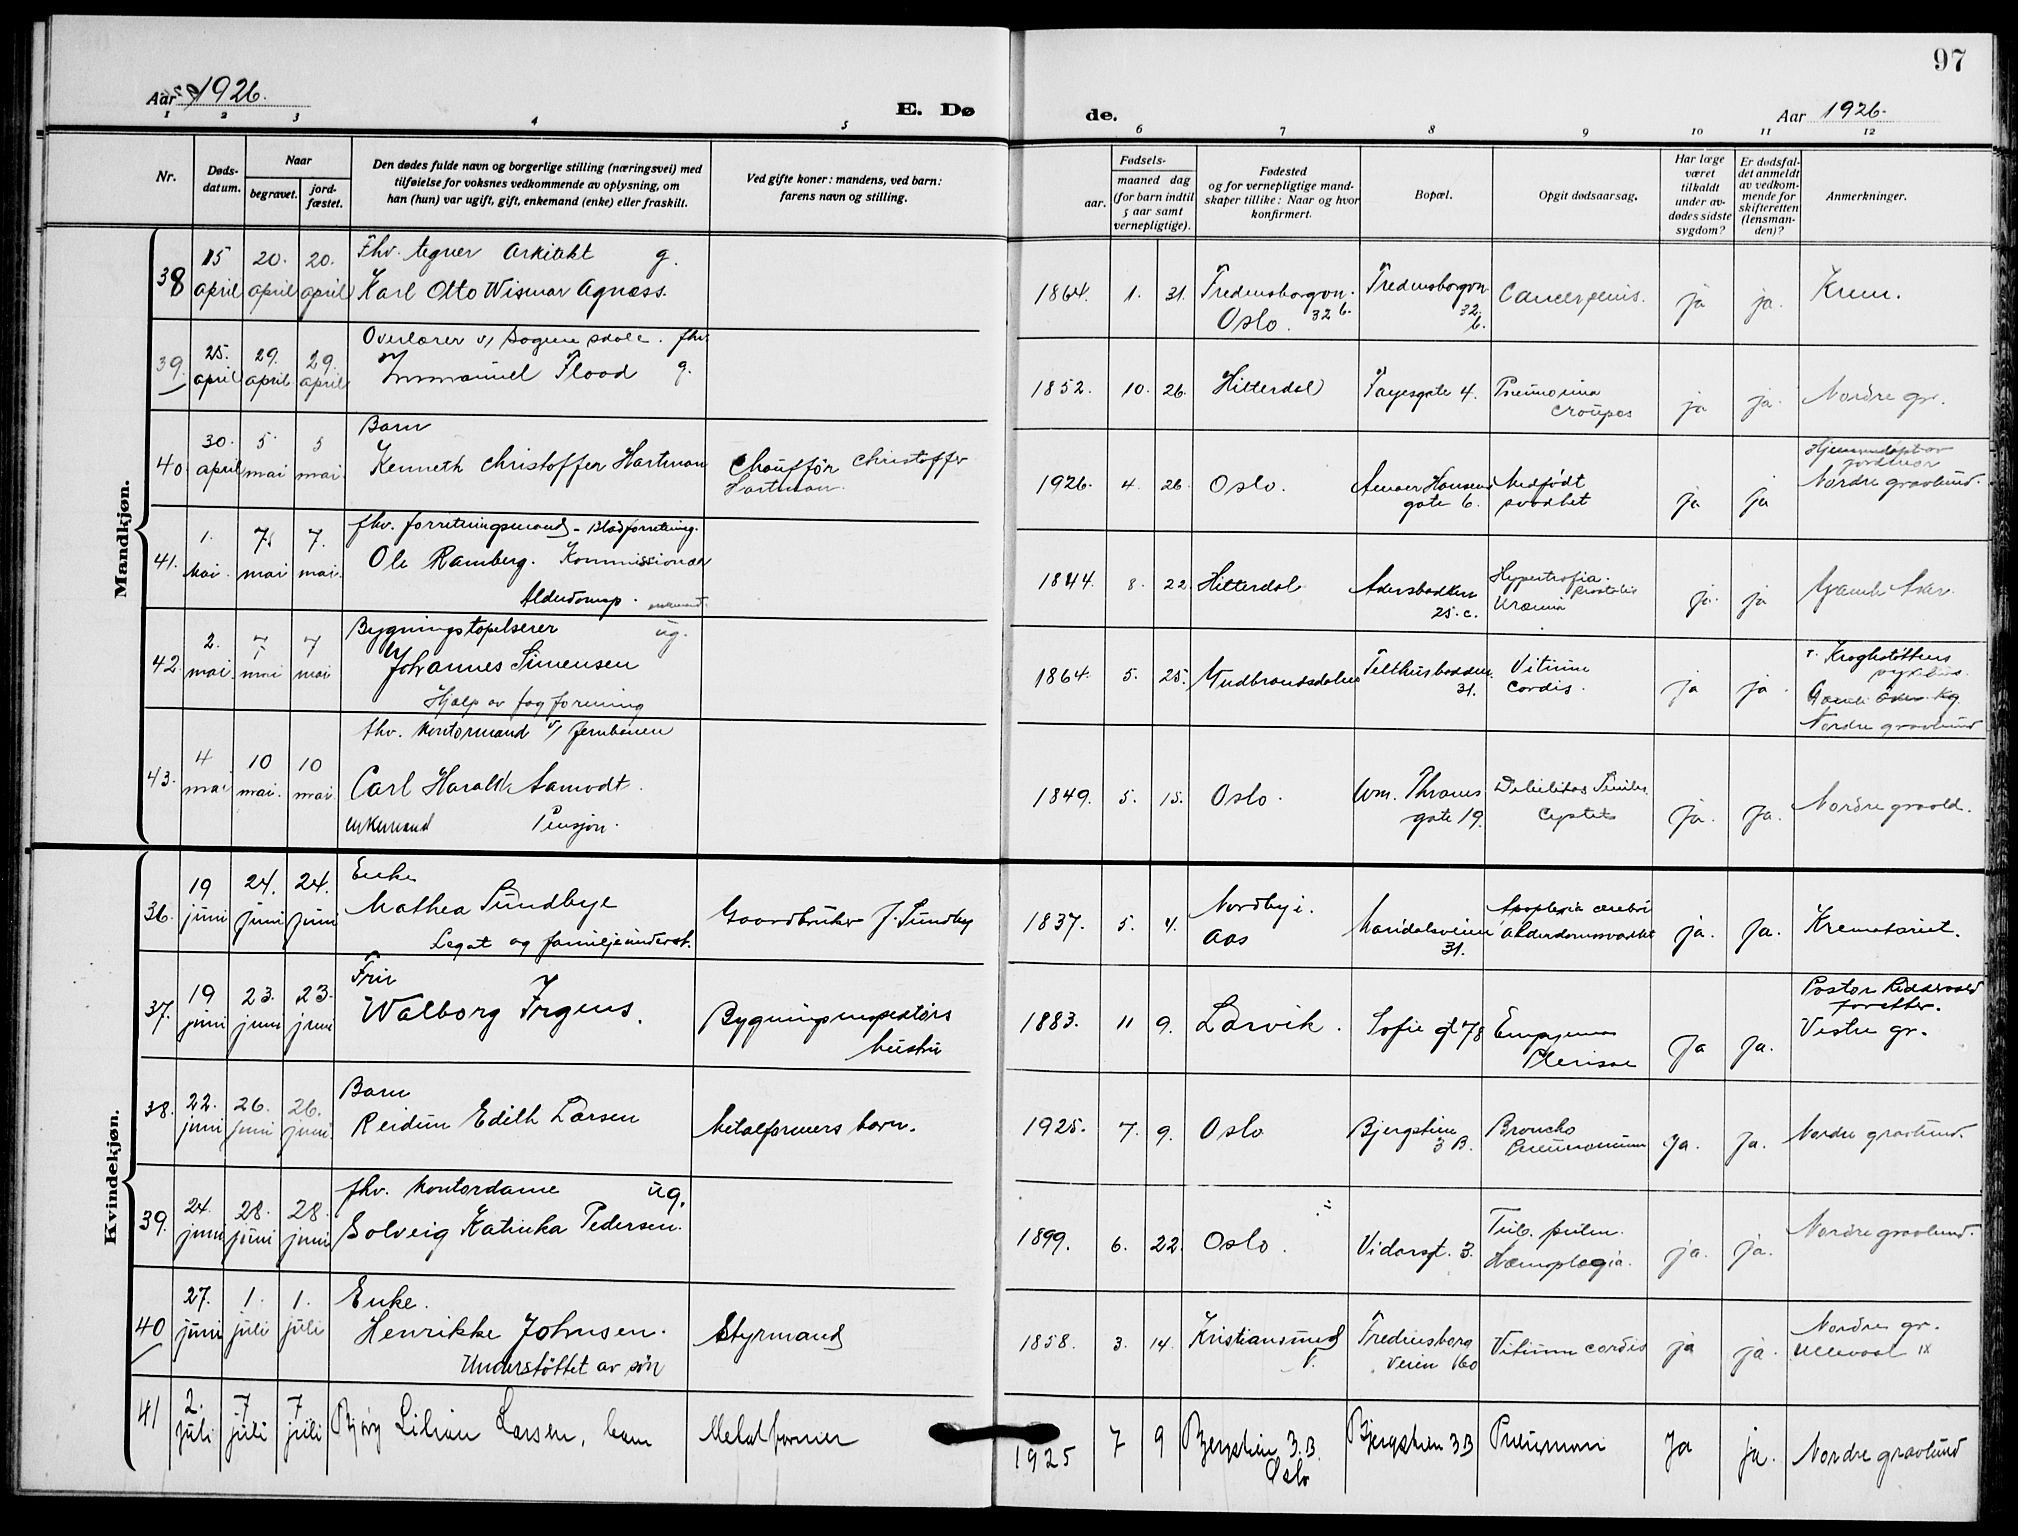 97
Aar 1926.
E. Dø
de.
Aar 1926.
1 2 3 4 5 6 7 8 9 10 11 12
Nr.
Døds-
datum.
Naar
begravet.
jord-
fæstet.
Den dødes fulde navn og borgerlige stilling (næringsvei) med
tilføielse for voksnes vedkommende av oplysning, om
han (hun) var ugift, gift, enkemand (enke) eller fraskilt.
Ved gifte koner: mandens, ved barn:
farens navn og stilling.
Fødsels-
aar.
maaned dag
(for barn indtil
5 aar samt
vernepligtige).
Fødested
og for vernepligtige mand-
skaper tillike: Naar og hvor
konfirmert.
Bopæl.
Opgit dødsaarsag.
Har læge
været
tilkaldt
under av-
dødes sidste
sygdom?
Er dødsfal-
det anmeldt
av vedkom-
mende for
skifteretten
(lensman-
den)?
Anmerkninger.
Mandkjøn.
38
15
april
20.
april
20.
april
Fhv. tegner Arkitekt g.
Karl Otto Wismar Agness.
1864. 1. 31.
Fredensborgvn.
32 b.
Oslo.
Fredensborgvn
32
b.
Cancer penis.
ja
ja.
Krem.
39.
25.
april
29.
april
29.
april
Overlærer v/ Sogne skole. fhv.
Immanuel Flood g.
1852. 10. 26.
Hitterdal
Fayesgate 4.
Pneumonia
croupos
ja
ja.
Nordre gr.
40.
30.
april
5.
mai
5
mai.
Barn
Kenneth Christoffer Hartman
Chauffør Christoffer
Hartman.
1926. 4. 26.
Oslo.
gate 6.
Medfødt
svakhet
ja
ja
Nordre gravlund.
41.
1.
Mai.
7.
mai
7.
mai.
fhv. forretningsmand - Bladforretning.
Ole Ramberg. Kommissionær
1844. 8. 22.
Hitterdal
Akersbakken
25. c.
Hypertrofia.
prostatis
Uræmia
ja.
ja
Gamle Aker.
42.
2.
mai.
7
mai
7
mai
Bygningstapetserer ug.
Johannes Simensen
Hjælp av fagforening
1864. 5. 25.
Gudbrandsdalen
Telthusbakken.
31.
Vitium
cordis.
ja
ja.
Nordre gravlund
43.
4
mai
10
mai.
10
mai
fhv. kontormand v/ Jernbanen
Carl Harald Aamodt.
enkemand Pensjon.
1849. 5. 15.
Oslo.
Wm. Thranes
gate 19.
Debilitas Senilis.
ja.
ja.
Nordre gravld.
Kvindekjøn.
36.
19
juni
24.
juni
24.
juni
Enke
Mathea Sundbye
Legat og familjeunderst.
Gaardbruker J. Sundby
1837. 5. 4.
Nordby i.
Aas
Maridalsveien
31.
Apoplexia cerebri
Alderdomssvakhet
ja.
Ja.
Krematoriet.
37.
19
juni
23.
juni
23.
juni
Fru
Walborg Irgens.
Bygningsinspektørs
hustru
1883. 11 9.
Larvik.
Sofie gt 78
Empyema
Plerisae
Ja
Ja.
Pastor Riddervold
forretter.
Vestre gr.
38.
22.
juni
26.
juni
26.
juni.
Barn
Reidun Edith Larsen
Metalformers barn.
1925. 7. 9.
Oslo
Bjergstien
3 B.
Broncho
Pneumonium
Ja.
Ja.
Nordre gravlund.
39.
24.
juni
28.
juni
28.
juni
fhv. Kontordame ug.
Solveig Katinka Pedersen.
1899. 6. 22.
Oslo.
Vidarsgt. 3.
Tub. pulm.
Hæmoplegia.
ja.
ja.
Nordre gravlund.
40
27.
juni
1.
juli
1.
juli
Enke.
Henrikke Johnsen.
Understöttet av søn
Styrmand
1858. 3. 14.
Kristiansund
N.
Fredensborg
veien 160
Vitium cordis
ja
ja.
Nordre gr.
Ullevaal IX
41
2.
juli
7
juli
7
juli
Bjørg Lilian Larsen, barn
Metalformer
1925 7 9
Bjergstien 3.B.
Oslo
Bjergstien 3B
Pneumoni
Ja
ja.
Nordre gravlund